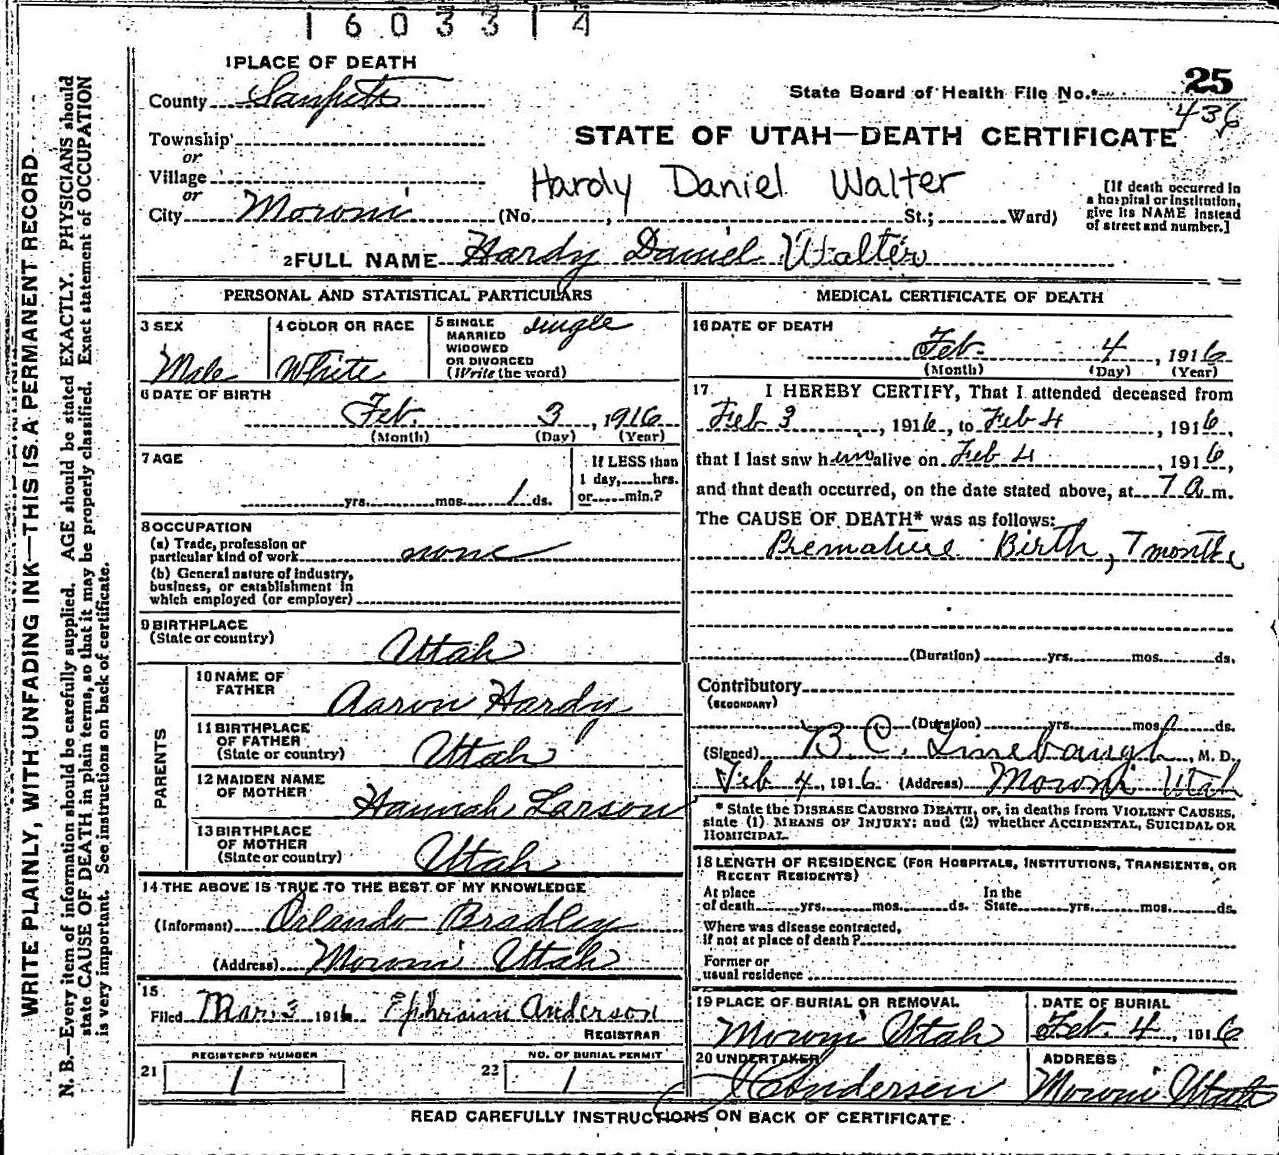 1603314
1 PLACE OF DEATH
County Sanpete
State Board of Health File No. 25
436
Township
or
Village
or
City Moroni (No. , St.; Ward)
STATE OF UTAH—DEATH CERTIFICATE
Hardy Daniel Walter
[If death occurred in a hospital or institution, give its NAME instead of street and number.]
2 FULL NAME Hardy Daniel Walter
PERSONAL AND STATISTICAL PARTICULARS
3 SEX
Male
4 COLOR OR RACE
White
5 SINGLE
MARRIED
WIDOWED
OR DIVORCED
(Write the word)
single
6 DATE OF BIRTH
Feb. 3, 1916
(Month) (Day) (Year)
7 AGE
yrs. mos. 1 ds.
If LESS than
1 day, hrs.
or min.?
8 OCCUPATION
(a) Trade, profession or
particular kind of work none
(b) General nature of industry,
business, or establishment in
which employed (or employer)
9 BIRTHPLACE
(State or country)
Utah
PARENTS
10 NAME OF
FATHER
Aaron Hardy
11 BIRTHPLACE
OF FATHER
(State or country)
Utah
12 MAIDEN NAME
OF MOTHER
Hannah Larson
13 BIRTHPLACE
OF MOTHER
(State or country)
Utah
14 THE ABOVE IS TRUE TO THE BEST OF MY KNOWLEDGE
(Informant) Orlando Bradley
(Address) Moroni Utah
15
Filed Mar. 3 1916 Ephraim Anderson
REGISTRAR
REGISTERED NUMBER
21 1
NO. OF BURIAL PERMIT
22 1
MEDICAL CERTIFICATE OF DEATH
16 DATE OF DEATH
Feb. 4, 1916
(Month) (Day) (Year)
17. I HEREBY CERTIFY, That I attended deceased from
Feb 3, 1916, to Feb 4, 1916,
that I last saw him alive on Feb 4, 1916,
and that death occurred, on the date stated above, at 7 a m.
The CAUSE OF DEATH* was as follows:
Premature Birth, 7 months
(Duration) yrs. mos. ds.
Contributory
(SECONDARY)
(Duration) yrs. mos. ds.
(Signed) B. C. Linebaugh, M. D.
Feb 4, 1916 (Address) Moroni Utah
* State the DISEASE CAUSING DEATH, or, in deaths from VIOLENT CAUSES,
state (1) MEANS OF INJURY; and (2) whether ACCIDENTAL, SUICIDAL OR
HOMICIDAL.
18 LENGTH OF RESIDENCE (FOR HOSPITALS, INSTITUTIONS, TRANSIENTS, OR
RECENT RESIDENTS)
At place
of death yrs. mos. ds.
In the
State yrs. mos. ds.
Where was disease contracted,
if not at place of death?
Former or
usual residence
19 PLACE OF BURIAL OR REMOVAL
Moroni Utah
DATE OF BURIAL
Feb. 4, 1916
20 UNDERTAKER
Andersen
ADDRESS
Moroni Utah
READ CAREFULLY INSTRUCTIONS ON BACK OF CERTIFICATE
WRITE PLAINLY, WITH UNFADING INK—THIS IS A PERMANENT RECORD
N. B.—Every item of information should be carefully supplied. AGE should be stated EXACTLY. PHYSICIANS should
state CAUSE OF DEATH in plain terms, so that it may be properly classified. Exact statement of OCCUPATION
is very important. See instructions on back of certificate.